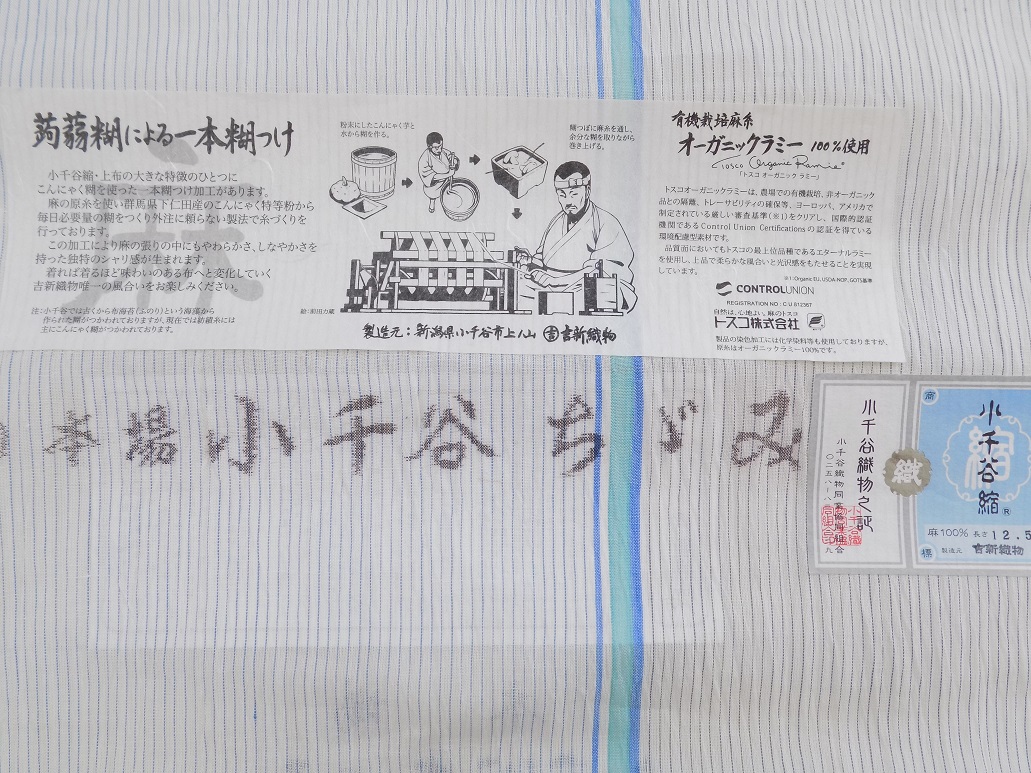 蒟蒻糊による一本糊つけ
小千谷縮・上布の大きな特徴のひとつに
こんにゃく糊を使った一本糊つけ加工があります。
麻の原糸を使い群馬県下仁田産のこんにゃく特等粉から
毎日必要量の糊をつくり外注に頼らない製法で糸づくりを
行っております。
この加工により麻の張りの中にもやわらかさ、しなやかさを
持った独特のシャリ感が生まれます。
着れば着るほど味わいのある布へと変化していく
吉新織物唯一の風合いをお楽しみください。
注:小千谷では古くから布海苔(ふのり)という海藻から
作られた糊がつかわれておりますが、現在では紡績糸には
主にこんにゃく糊がつかわれております。
麻
粉末にしたこんにゃく芋と
水から糊を作る。
糊つぼに麻糸を通し、
余分な糊を取りながら
巻き上げる。
絵:和田力蔵
製造元:新潟県小千谷市上ノ山 吉 吉新織物
有機栽培麻糸
オーガニックラミー 100%使用
Tosco Organic Ramie®
「トスコ オーガニック ラミー」
トスコオーガニックラミーは、農場での有機栽培、非オーガニック
品との隔離、トレーサビリティの確保等、ヨーロッパ、アメリカで
制定されている厳しい審査基準(※1)をクリアし、国際的認証
機関であるControl Union Certificationsの認証を得ている
環境配慮型素材です。
品質面においてもトスコの最上位品種であるエターナルラミー
を使用し、上品で柔らかな風合いと光沢感をもたせることを実現
しています。
※1:Organic EU, USDA-NOP, GOTS基準
CONTROLUNION
REGISTRATION NO : C U 812367
自然は、心地よい。麻のトスコ
トスコ株式会社
製品の染色加工には化学染料等も使用しておりますが、
原糸はオーガニックラミー100%です。
本場小千谷ちぢみ
小千谷織物之証
小千谷織物同業協同組合
織
商
標
小千谷縮®
縮
麻100% 長さ12.5
製造元 吉新織物